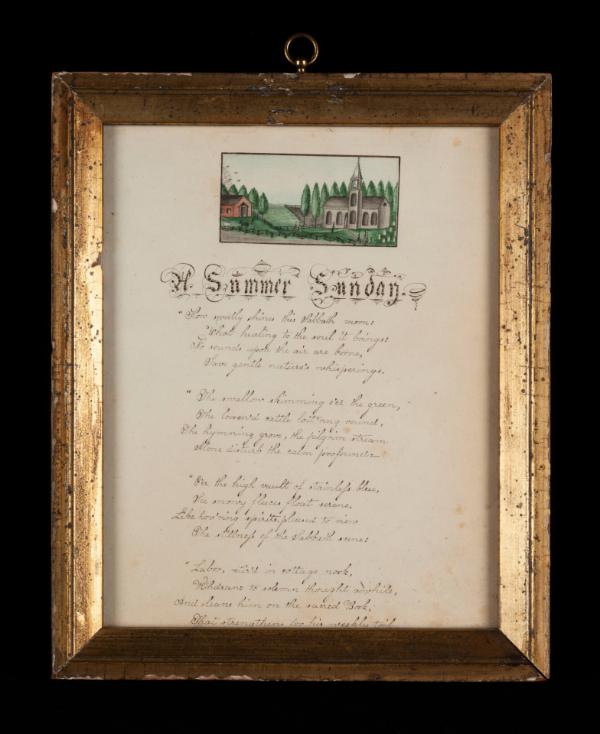 A Summer Sunday.
"How sweetly shines this Sabbath morn:
What healing to the soul it brings:
No sounds upon the air are borne,
Save gentle nature's whisperings.
"The swallow skimming o'er the green,
The loosen'd cattle loit'ring round,
The hymning grove, the pilgrim stream
Alone disturb the calm profound:
"O'er the high vault of stainless blue,
The snowy fleeces float serene,
Like hov'ring spirits pleased to view
The stillness of the Sabbath scene:
"Labor, in cottage nook,
Withdraws to solemn thought awhile,
And leans him on the sacred Book,
That strengthens for his weekly toil